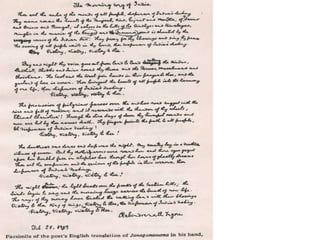 The Morning Song of India
Thou art the ruler of the minds of all people, dispenser of India's destiny
Thy name rouses the hearts of the Punjab, Sind, Gujrat and Maratha, of Dravid
and Orissa and Bengal, it echoes in the hills of the Vindhyas and Himalayas,
mingles in the music of and is chanted by the
waves of the Indian Sea. They pray for thy blessings and sing thy praise,
the saving of all people waits in thy hand, thou dispenser of India's destiny.
Victory, Victory, Victory to thee.
Day and night thy voice goes out from land to land calling the Hindus,
Buddhists, Sikhs and Jains round thy throne and the Parsees, Mussalmans and
Christians. The East and the West join hands in their prayer to thee, and the
garland of love is woven. Thou bringest the hearts of all people into the harmony
of one life, thou dispenser of India's destiny.
Victory, Victory, Victory to thee.
The procession of pilgrims passes over the endless road rugged with the
rise and fall of nations, and it resounds with the thunder of thy wheels,
Eternal Charioteer! Through the dire days of doom thy trumpet sounds and
men are led by thee across death. Thy finger points the path to all people,
Oh dispenser of India's destiny!
Victory, victory, victory to thee!
The darkness was dense and deep was the night. My country lay in a deathlike
silence of swoon. But thy mother arms were round her and thine eyes gazed
upon her troubled face in sleepless love through her hours of ghastly dreams.
Thou art the companion and the saviour of the people in their sorrows, thou
dispenser of India's destiny.
Victory, victory, victory to thee!
The night the light breaks over the peaks of the Eastern hills, the
birds begin to sing and the morning breeze carries the breath of new life.
The rays of thy mercy have touched the waking land with their blessings
Victory to thee, King of Kings, Victory to thee, the dispenser of India's destiny.
Victory, victory, victory to thee.
Rabindranath Tagore
Feb. 28, 1919
Facsimile of the poet's English translation of Janaganamana in his hand,